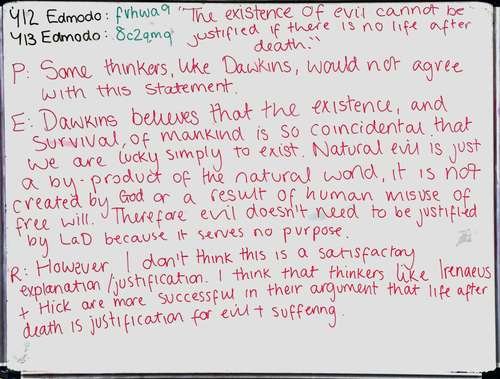 Y12 Edmodo: frhwa9 "The existence of evil cannot be
Y13 Edmodo: 8c2qmq justified if there is no life after
death."
P: Some thinkers, like Dawkins, would not agree
with this statement.
E: Dawkins believes that the existence, and
survival, of mankind is so coincidental that
we are lucky simply to exist. Natural evil is just
a by-product of the natural world, it is not
created by God or a result of human misuse of
free will. Therefore evil doesn't need to be justified
by LaD because it serves no purpose.
R: However, I don't think this is a satisfactory
explanation/justification. I think that thinkers like Irenaeus
+ Hick are more successful in their argument that life after
death is justification for evil + suffering.